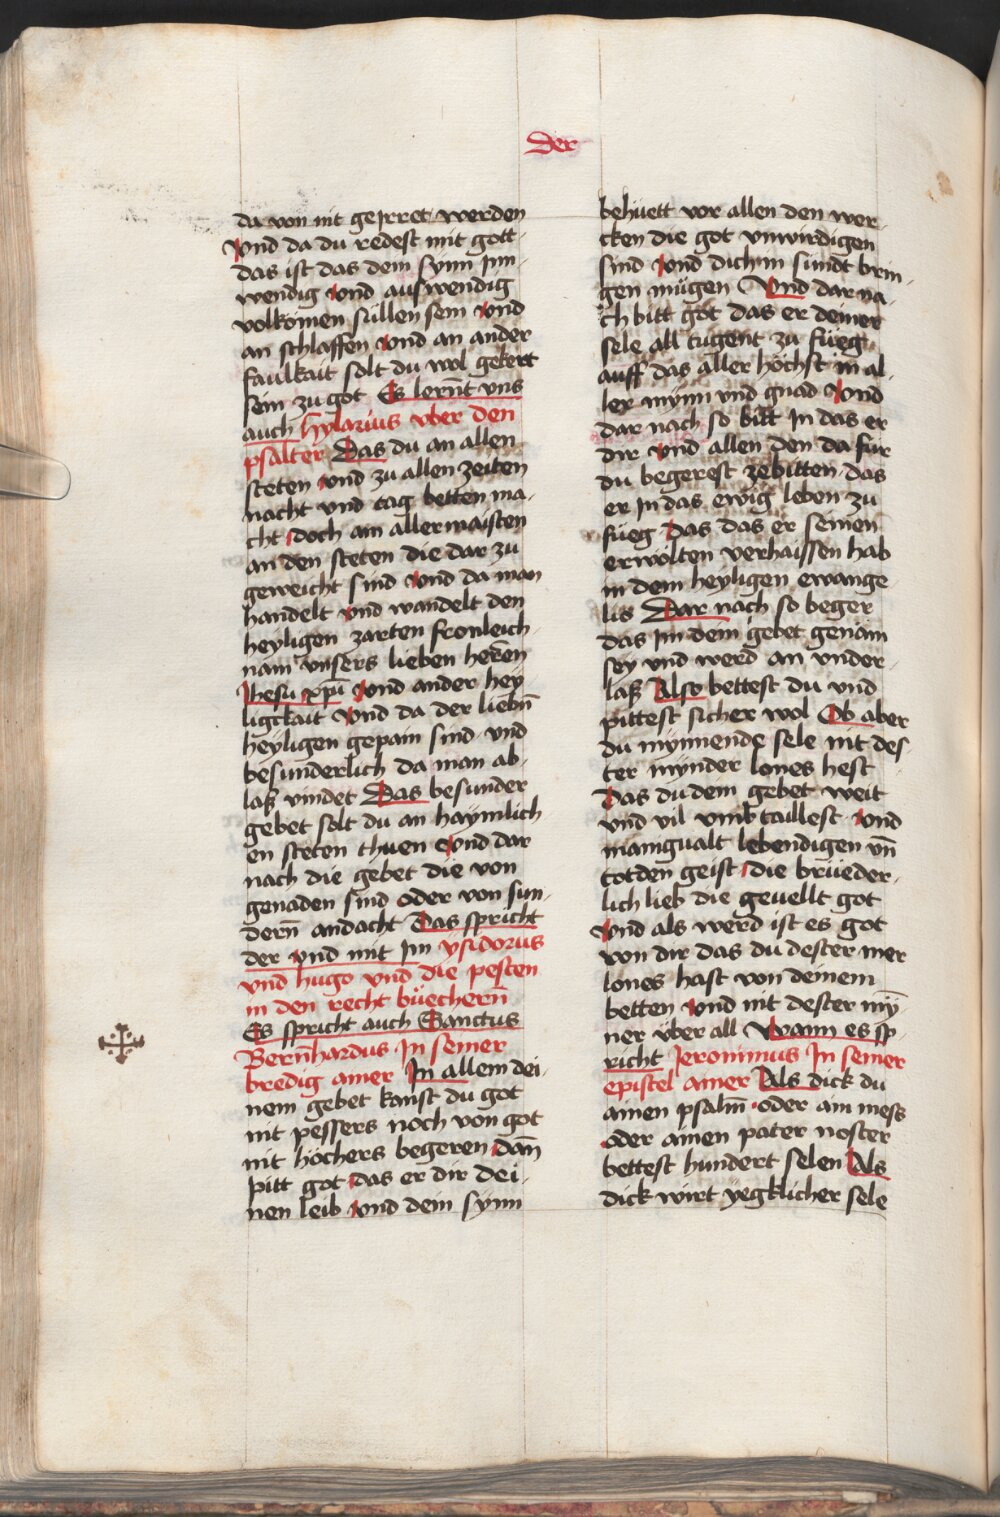 Der
da von nit geirret werden
Vnd da du redest mit gott
das ist das dein synn jnn
wendig vnd auswendig
volkömen süllen sein vnd
an schlaffen vnd an ander
faulkait solt du wol gekert
sein zu got Es lernt vns
auch Hylarius vber den
psalter Das du an allen
steten vnd zu allen zeiten
nacht vnd tag betten ma
cht doch am allermaisten
an den steten die dar zu
geweicht sind vnd da man
handelt vnd wandelt den
heyligen zarten fronleich
nam vnsers lieben herren
Jhesu xpū vnd ander hey
ligkait vnd da der liebn̄
heyligen gepain sind vnd
besunderlich da man ab
laß vindet Das besunder
gebet solt du an haymlich
en steten thuen vnd dar
nach die gebet die von
genaden sind oder von sun
dern̄ andacht Das spricht
der vnd mit im ysidorus
vnd hugo vnd die pesten
in den recht büechern̄
Es spricht auch Sanctus
Bernhardus In seiner
bredig ainer In allem dei
nem gebet kanst du got
nit pessers noch von got
nit höchers begeren dan̄
pitt got das er dir dei
nen leib vnd dein synn
behüett vor allen den wer
cken die got vnwirdigen
sind vnd dich in sundt brin
gen mügen Vnd dar na
ch bitt got das er deiner
sele all tugent zu füeg
auff das aller höchst in al
ler mynn vnd gnad vnd
dar nach so bitt in das er
dir vnd allen den da für
du begerest ze bitten das
er in das ewig leben zu
füeg Das das er seinen
erwölten verhaissen hab
in dem heyligen ewange
lis Dar nach so beger
das im dein gebet genäm
sey vnd werd an vnder
laß Also bettest du vnd
pittest sicher wol Ob aber
du mynnende sele nit des
ter mynder lones hest
Das du dein gebet weit
vnd vil vmb taillest vnd
mainguàlt lebendigen vn̄
totden geist die brüeder
lich lieb die geuellt got
Vnd als werd ist es got
von dir das du dester mer
lones hast von deinem
betten vnd nit dester my̅
ner vber all Wann es sp
richt Jeronimus In seiner
epistel ainer Als dick du
ainen psalm̄ oder ain mess
oder ainen pater noster
bettest hundert selen Als
dick wirt yegklicher sele